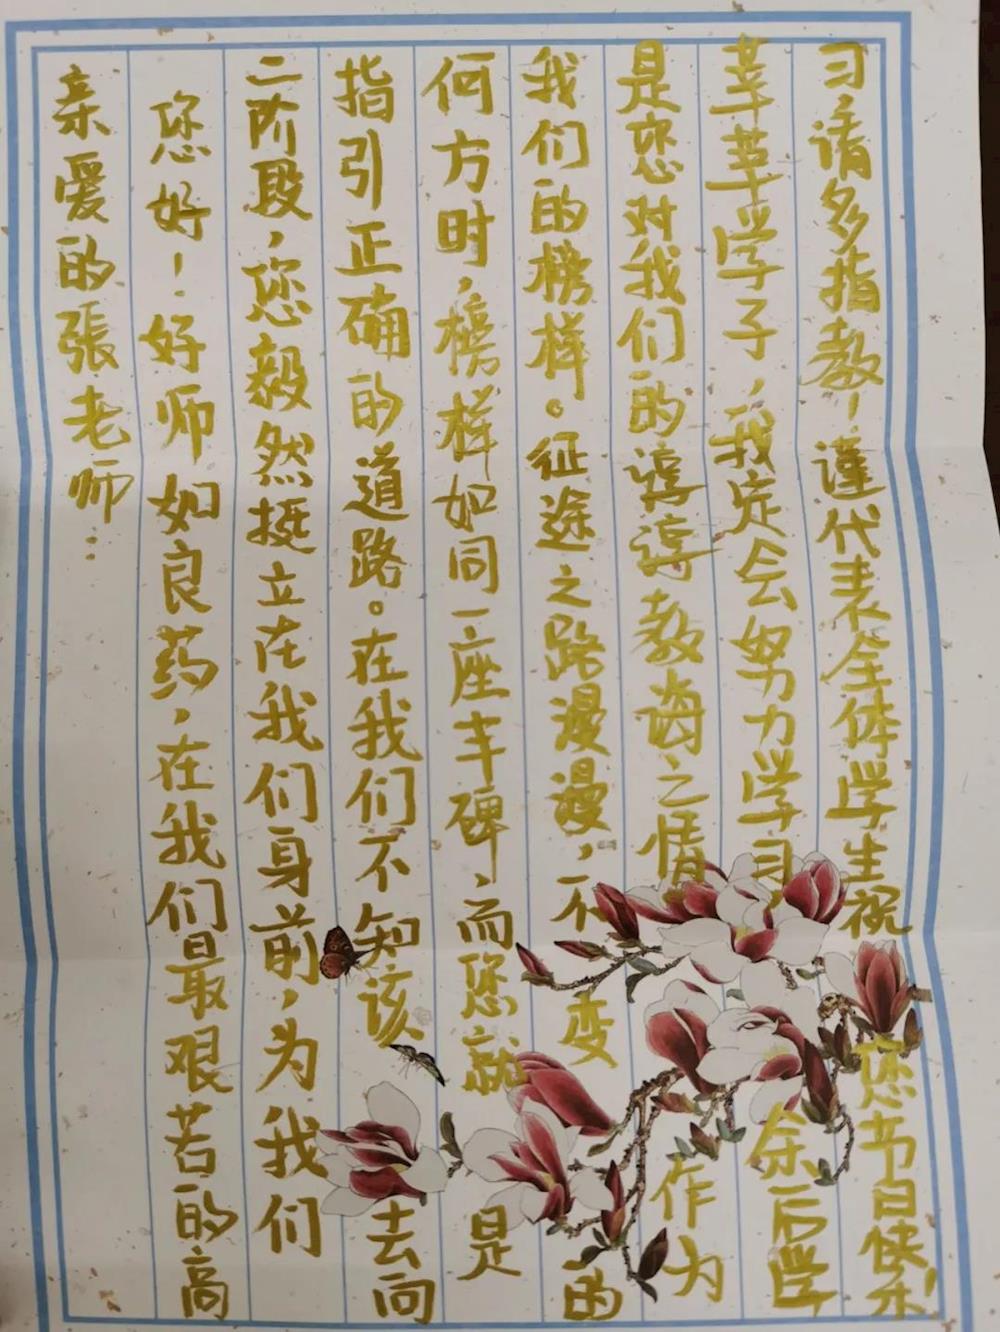 亲爱的張老师：
您好！好师如良药，在我们最艰苦的高
二阶段，您毅然挺立在我们身前，为我们
指引正确的道路。在我们不知该去向
何方时，榜样如同一座丰碑，而您就是
我们的榜样。征途之路漫漫，不变的
是您对我们的谆谆教诲之情，作为
莘莘学子，我定会努力学习，余后学
习，请多指教！谨代表全体学生祝您节日快乐！